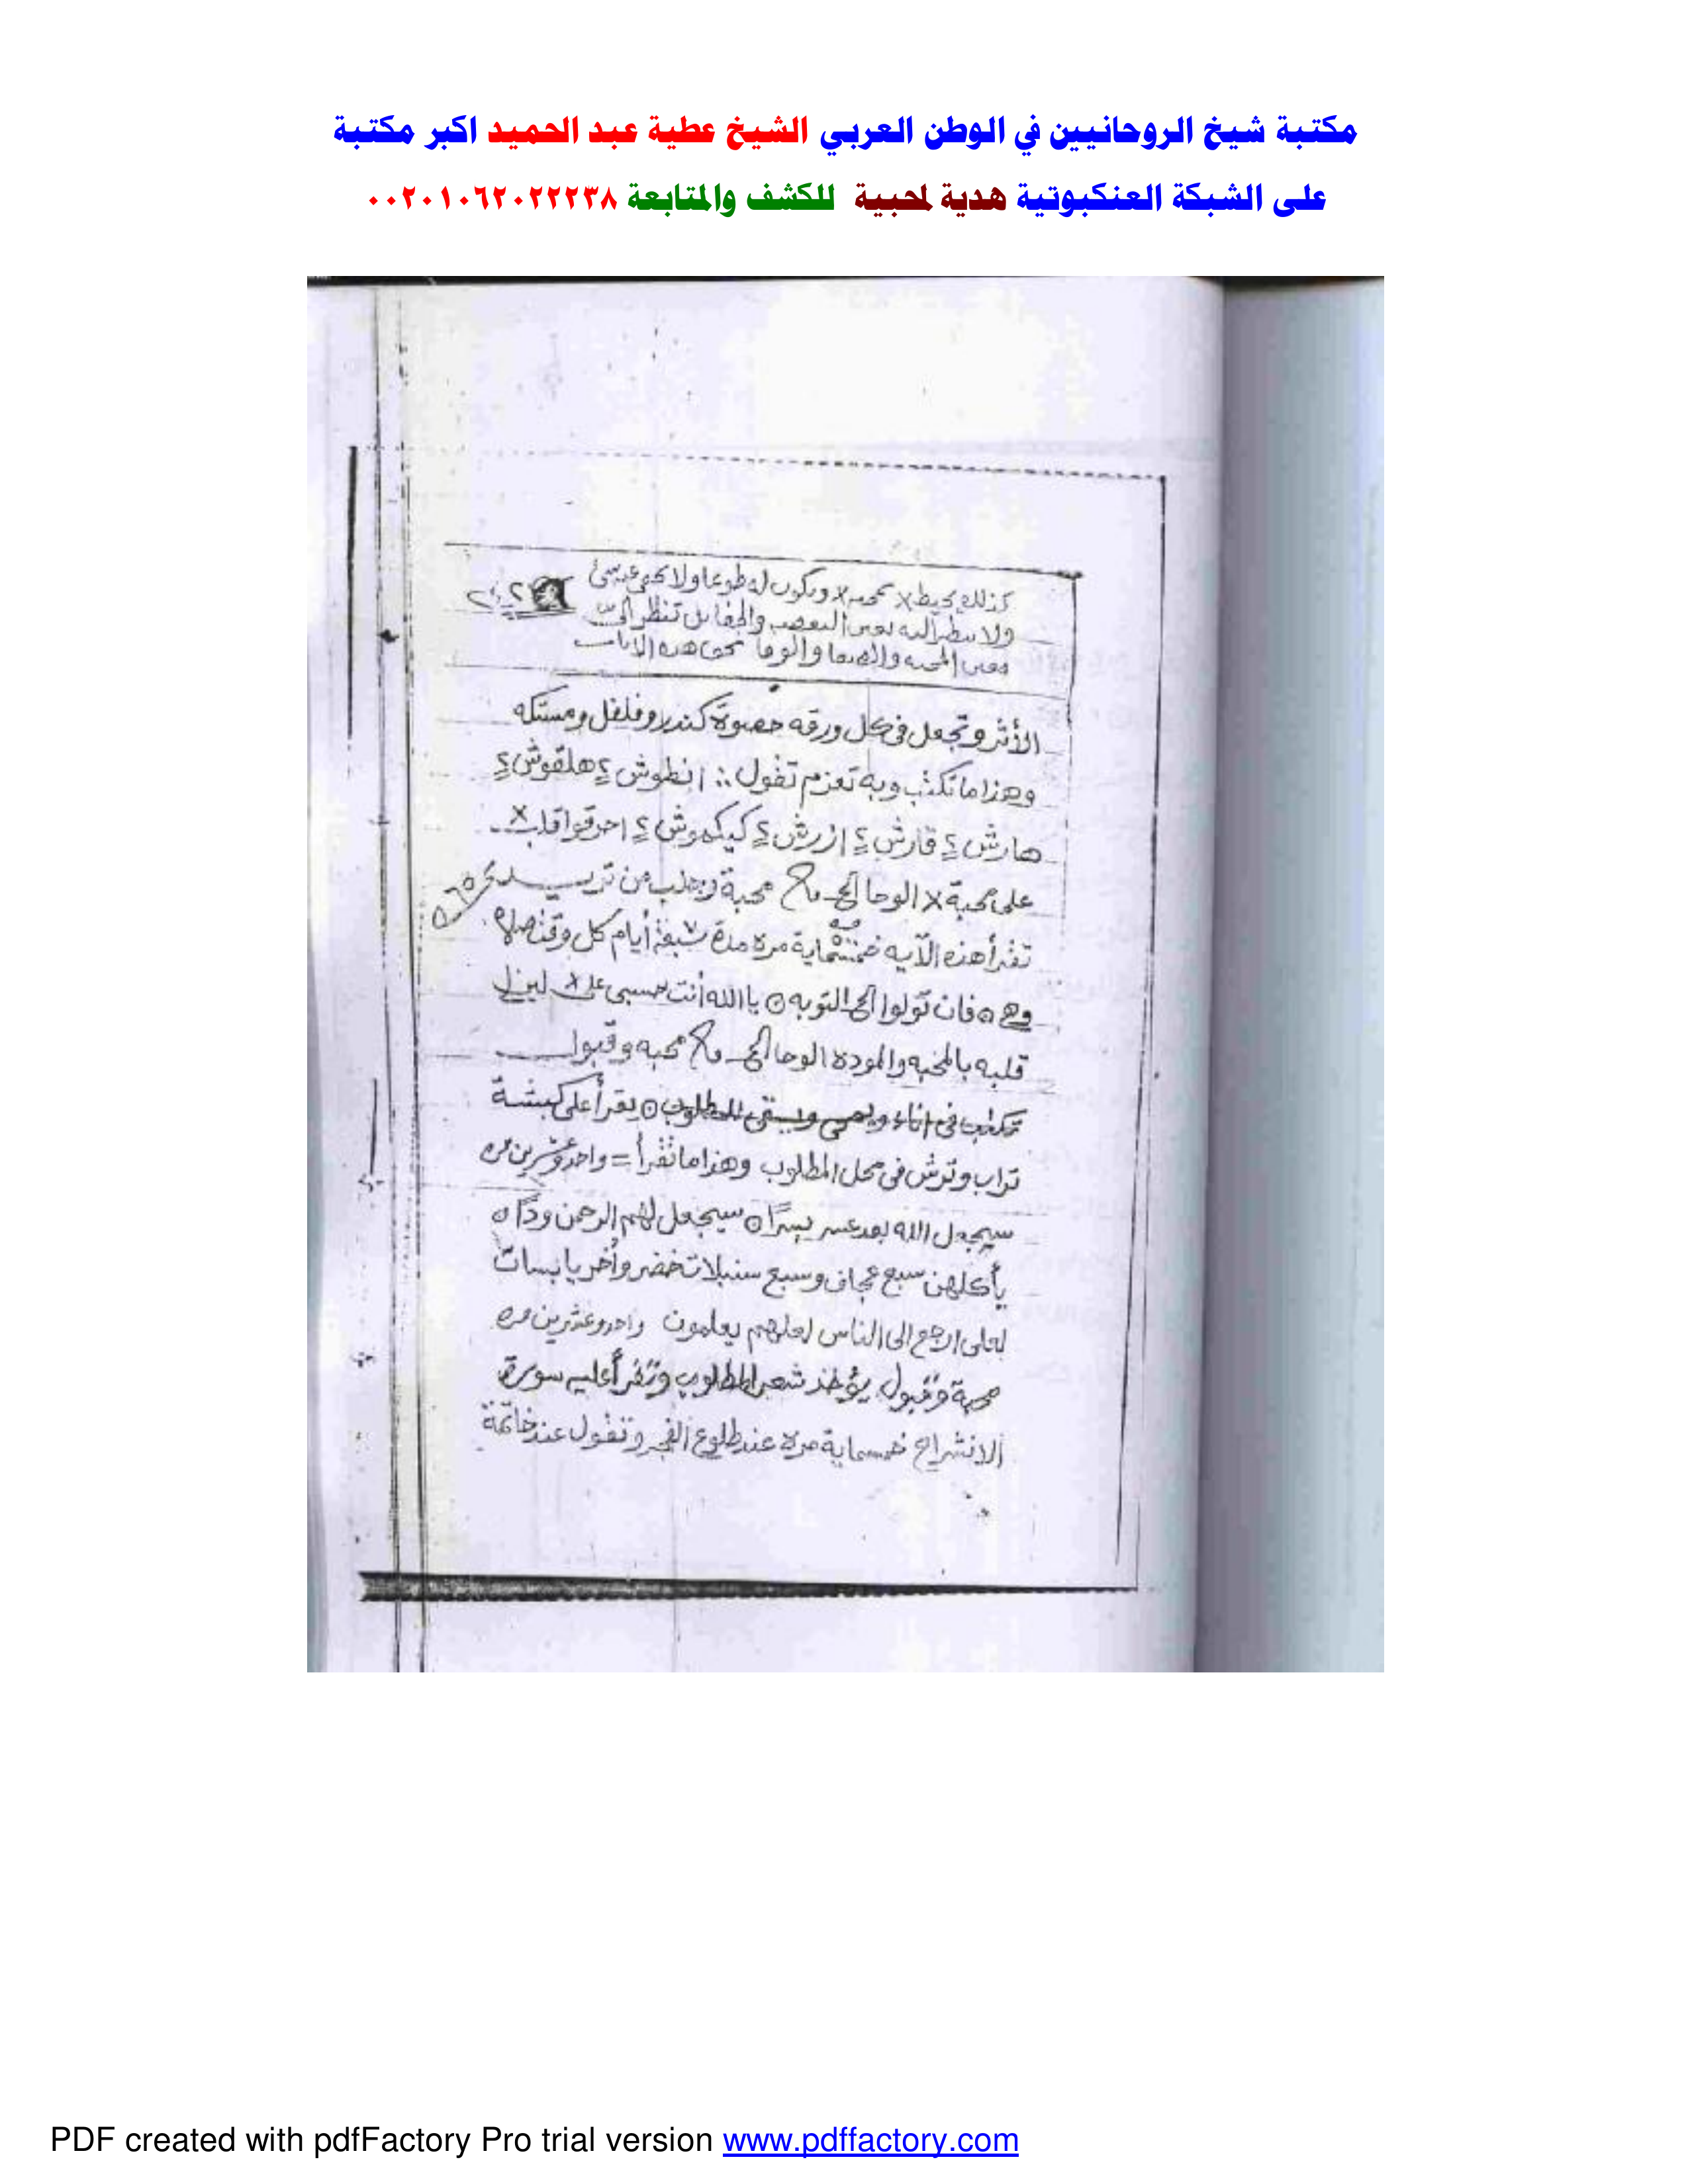 مكتبة شيخ الروحانيين في الوطن العربي الشيخ عطية عبد الحميد اكبر مكتبة
على الشبكة العنكبوتية هدية لمحبية للكشف والمتابعة ٠٠٢٠١٠٦٢٠٢٢٢٣٨
كذلك يحيط x ويكون له طوعا ولا
ولا والجفا بل تنظر الىّ
هده الايات
الأثر وتجعل في كل ورقه حصوة كندر وفلفل ومستكه
وهذا ما تكتب وبه تعزم تقول ∴ انطوش ٤ هلقوش ٤
هارش ٤ قارش ٤ ازرش ٤ كيكموش ٤ احرقوا قلب x
على محبة x الوحا محبة وجلب من تريد
تقرأ هذه الآيه خمسماية مره مدة سبعة أيام كل وقت صلاه
وهي ۵ فان تولوا الى التوبه ۵ يا الله أنت حسبى على x ليزل
قلبه بالمحبه والموده الوحا محبه وقبول
تكتب في اناء ويمحى ويسقى للمطلوب ۵ يقرأ على كبشة
تراب وترش في محل المطلوب وهذا ما تقرأ = واحد وعشرين مره
سيجعل الله بعد عسر يسرًا ۵ سيجعل لهم الرحمن ودًا ۵
يأكلهن سبع عجاف وسبع سنبلات خضر وأخر يابسات
لعلى ارجع الى الناس لعلهم يعلمون واحد وعشرين مره
محبة وقبول يؤخذ شعر المطلوب وتقرأ عليه سورة
الانشراح خمسماية مره عند طلوع الفجر وتقول عند خاتمة
PDF created with pdfFactory Pro trial version www.pdffactory.com